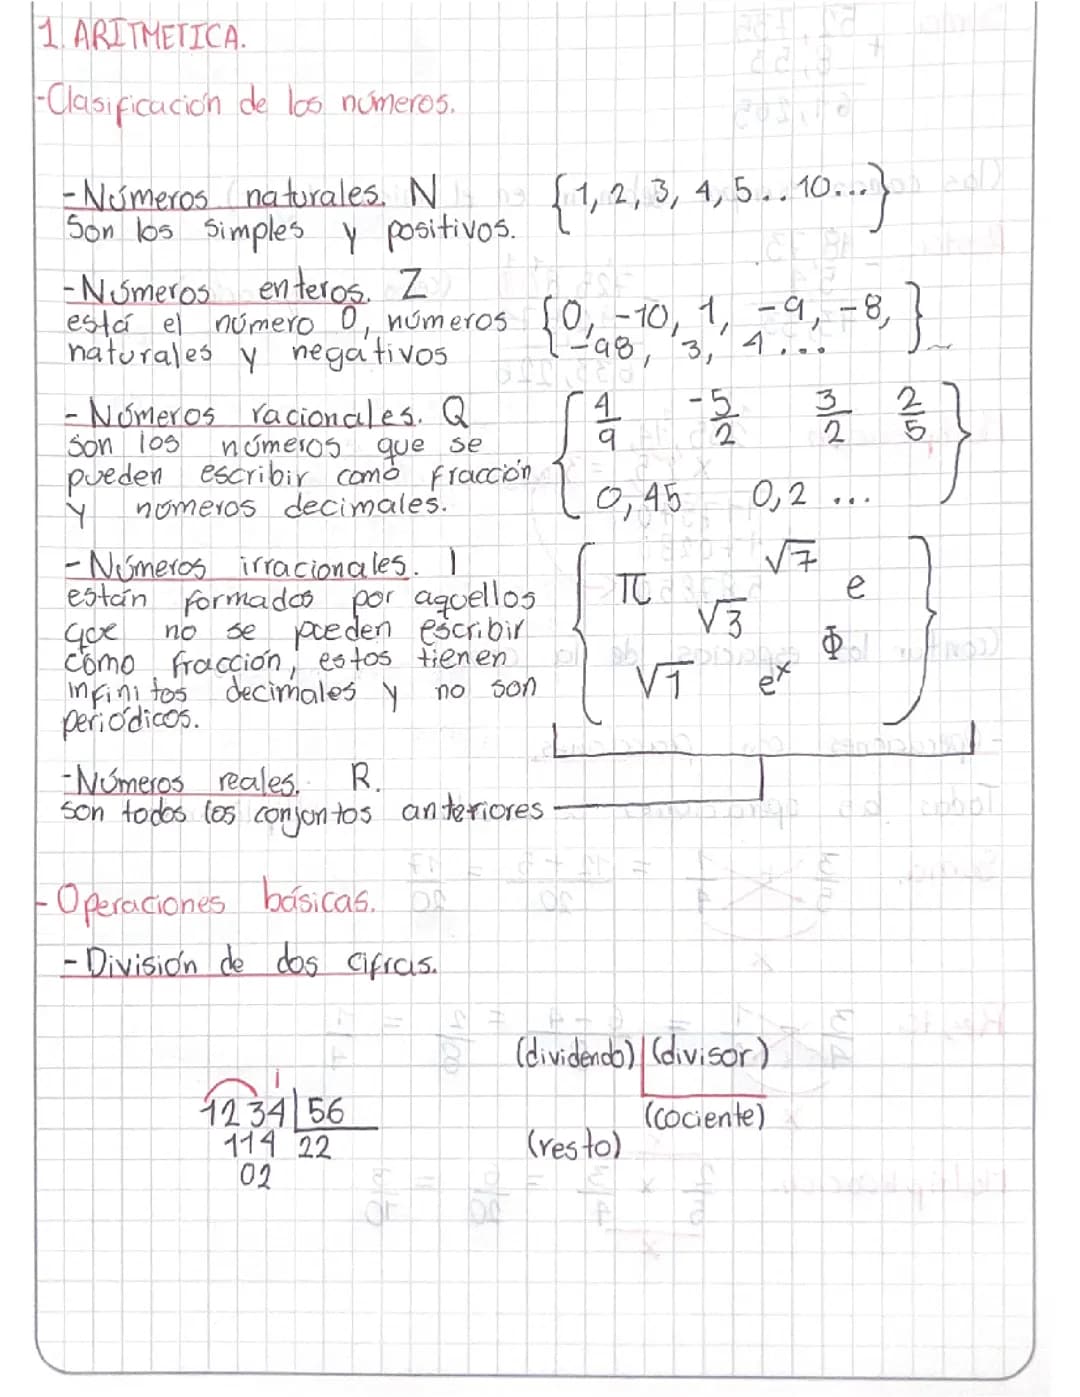 1. ARITMETICA.
-Clasificación de los números.
-Números naturales. N {1, 2, 3, 4, 5.. 10...}
Son los simples y positivos.
-Números enteros. Z
está el número 0, números {0, -10, 1, -9, -8,
naturales y negativos -98, 3, 4...}
-Números racionales. Q 4/9 -5/2 3/2 2/5
son los números que se
pueden escribir como fracción 0,45 0,2 ...
y números decimales.
-Números irracionales. I √7
están formados por aquellos π √3 e
que no se pueden escribir
como fracción, estos tienen √1 e^x Φ
infinitos decimales y no son
periódicos.
-Números reales. R.
son todos los conjuntos anteriores
-Operaciones básicas.
-División de dos cifras.
(dividendo) (divisor)
1234 56 (cociente)
114 22 (resto)
02